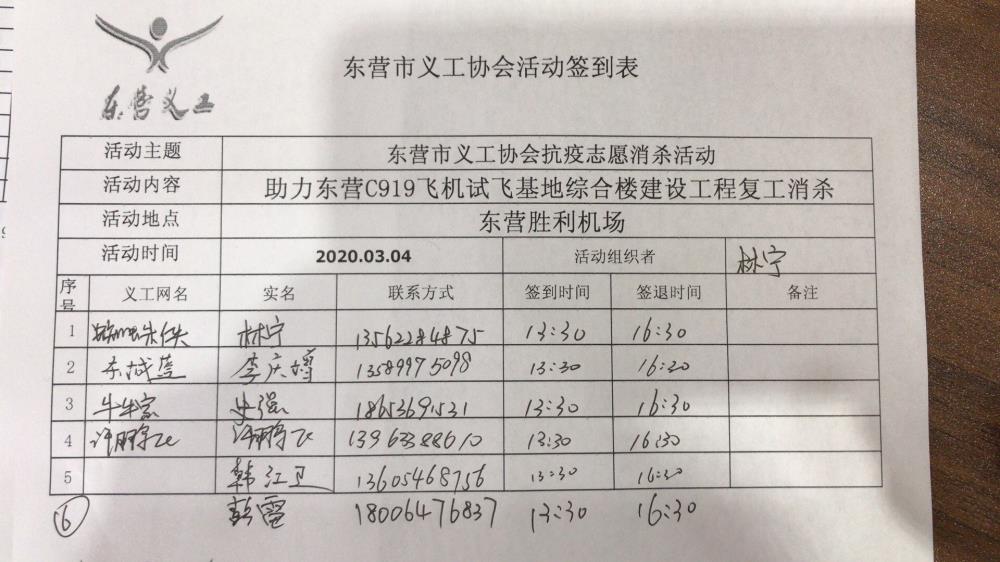 东营市义工协会活动签到表
东营义工
活动主题 东营市义工协会抗疫志愿消杀活动
活动内容 助力东营C919飞机试飞基地综合楼建设工程复工消杀
活动地点 东营胜利机场
活动时间 2020.03.04 活动组织者 林宁
序号 义工网名 实名 联系方式 签到时间 签退时间 备注
1 林宁 13562284875 13:30 16:30
2 东城 李庆 13589975098 13:30 16:20
3 牛牛家 史强 18653691531 13:30 16:30
4 许鹏飞 许鹏飞 13963388610 13:30 16:30
5 韩江卫 13605468756 13:30 16:30
6 彭雷 18006476837 13:30 16:30